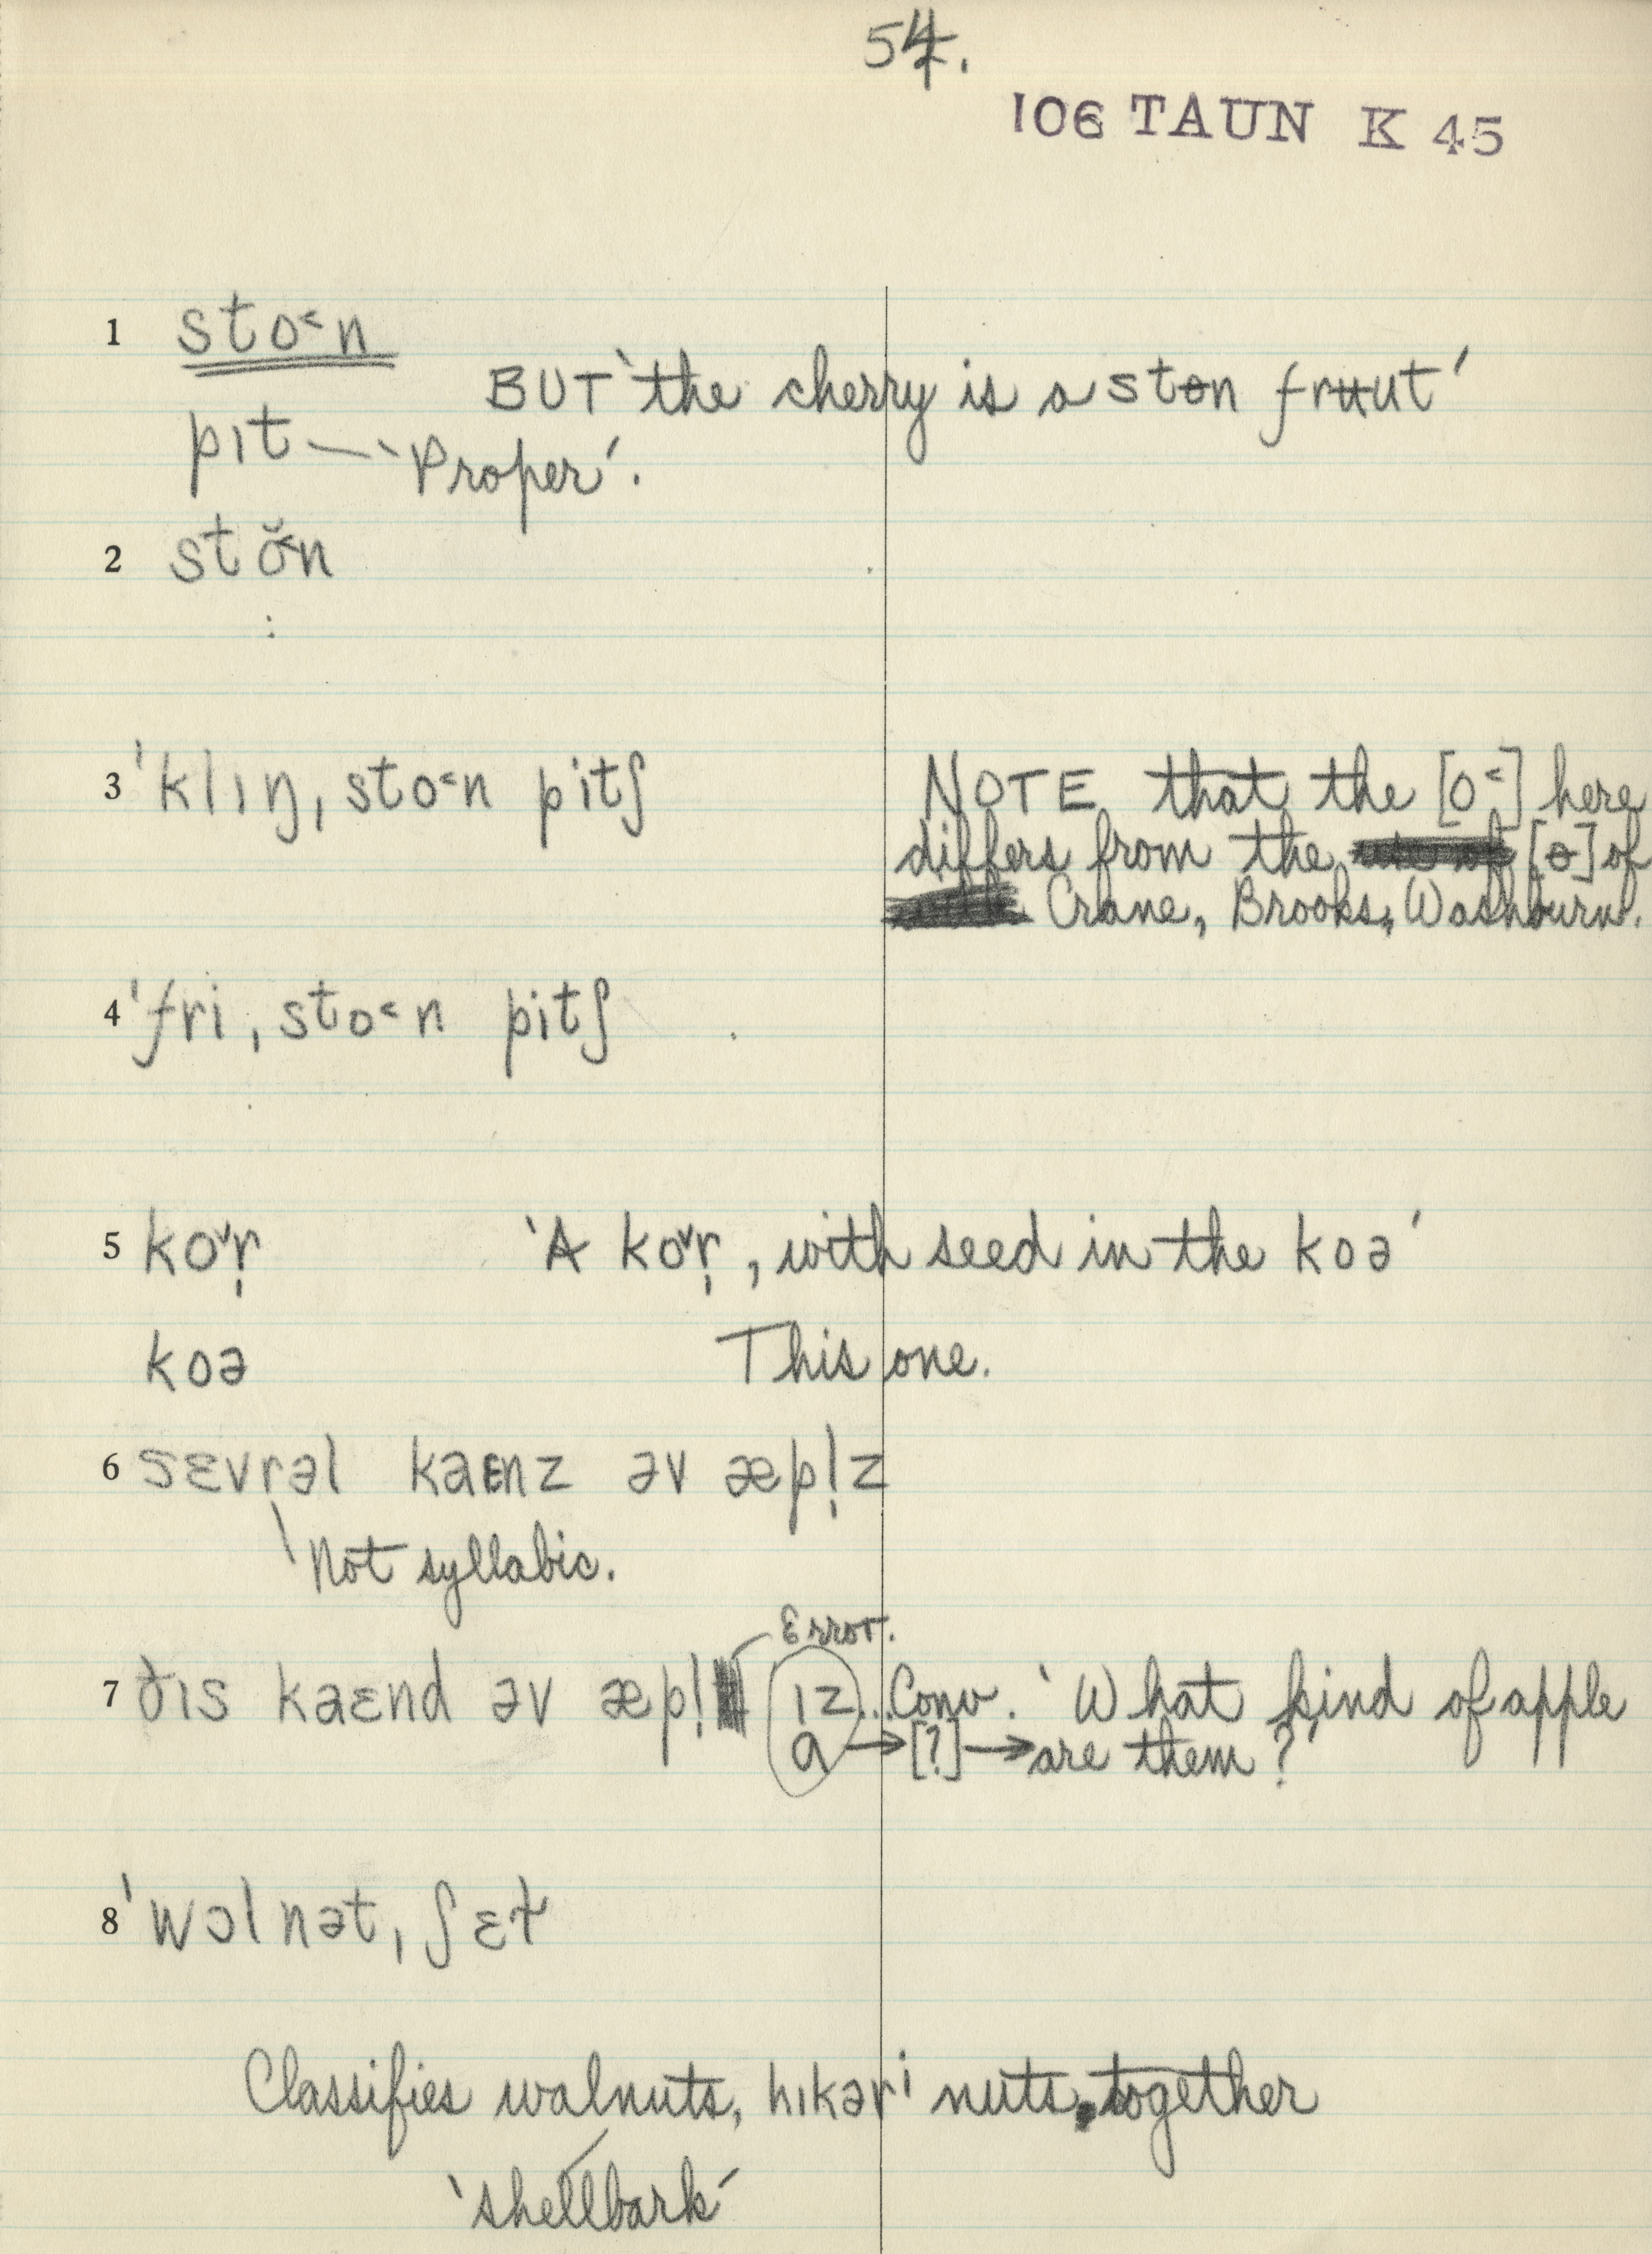 54.
106 TAUN K 45
1 sto˂n
BUT 'the cherry is a stɵn frʉut'
pɪt — 'Proper'.
2 stŏ˂n
3 'klɪŋ, sto˂n pitʃ
NOTE that the [o˂] here
differs from the [ɵ] of
Crane, Brooks, Washburn.
4 'fri, sto˂n pitʃ
5 ko˅r̩ 'A ko˅r̩, with seed in the koə'
koə This one.
6 sɛvrəl kaɛnz əv æpl̩z
Not syllabic.
Error.
7 ðɪs kaɛnd əv æpl̩ ɪz... Conv. 'What kind of apple
a → [?] → are them?'
8 'wɔlnət, ʃɛt̬
Classifies walnuts, hɪkəri nuts, together
'shellbark'